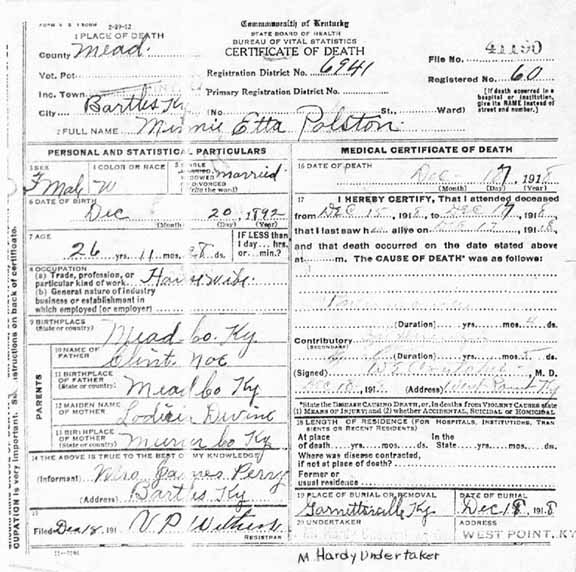 2-29-12
Commonwealth of Kentucky
STATE BOARD OF HEALTH
BUREAU OF VITAL STATISTICS
CERTIFICATE OF DEATH
1 PLACE OF DEATH
County Mead.
Vot. Pct
Inc. Town
City Bartles Ky (No St., Ward)
Registration District No. 6941
Primary Registration District No.
File No. 41190
Registered No. 60
[If death occurred in a hospital or institution, give its NAME instead of street and number.]
2 FULL NAME Minnie Etta Polston
PERSONAL AND STATISTICAL PARTICULARS
3 SEX F Male
4 COLOR OR RACE W
5 SINGLE
WIDOWED
OR DIVORCED
(Write the word)
married
6 DATE OF BIRTH
Dec 20, 1892
(Month) (Day) (Year)
7 AGE
26 yrs. 11 mos. 28 ds.
IF LESS than
1 day... hrs.
or...min.?
8 OCCUPATION
(a) Trade, profession, or
particular kind of work House Wife
(b) General nature of industry
business or establishment in
which employed (or employer)
9 BIRTHPLACE
(State or country) Mead Co. Ky
PARENTS
10 NAME OF
FATHER Clint Noe
11 BIRTHPLACE
OF FATHER
(State or country) Mead Co Ky
12 MAIDEN NAME
OF MOTHER Divine
13 BIRTHPLACE
OF MOTHER
(State or country) Co Ky
14 THE ABOVE IS TRUE TO THE BEST OF MY KNOWLEDGE
(Informant) Mrs James Perry
(Address) Bartles Ky
15
Filed Dec 18, 191 V P
REGISTRAR
MEDICAL CERTIFICATE OF DEATH
16 DATE OF DEATH
Dec 17, 1918
(Month) (Day) (Year)
17 I HEREBY CERTIFY, That I attended deceased
from Dec 15, 1918, to Dec 17, 1918
that I last saw h alive on Dec 17, 1918,
and that death occurred on the date stated above
at m. The CAUSE OF DEATH* was as follows:
(Duration) yrs. mos. ds.
Contributory
(SECONDARY)
(Duration) yrs. mos. ds.
(Signed) M. D.
Dec 18 191 (Address) West Point Ky
*State the DISEASE CAUSING DEATH, or, in deaths from VIOLENT CAUSES state
(1) MEANS OF INJURY; and (2) whether ACCIDENTAL, SUICIDAL or HOMICIDAL
18 LENGTH OF RESIDENCE (FOR HOSPITALS, INSTITUTIONS, TRANSIENTS OR RECENT RESIDENTS)
At place
of death yrs. mos. ds.
In the
State yrs. mos. ds.
Where was disease contracted,
if not at place of death?
Former or
usual residence
19 PLACE OF BURIAL OR REMOVAL
Garnettsville Ky
DATE OF BURIAL
Dec 18, 1918
20 UNDERTAKER
ADDRESS
WEST POINT, KY
M Hardy Undertaker
structions on back of certificate.
CUPATION is very important.